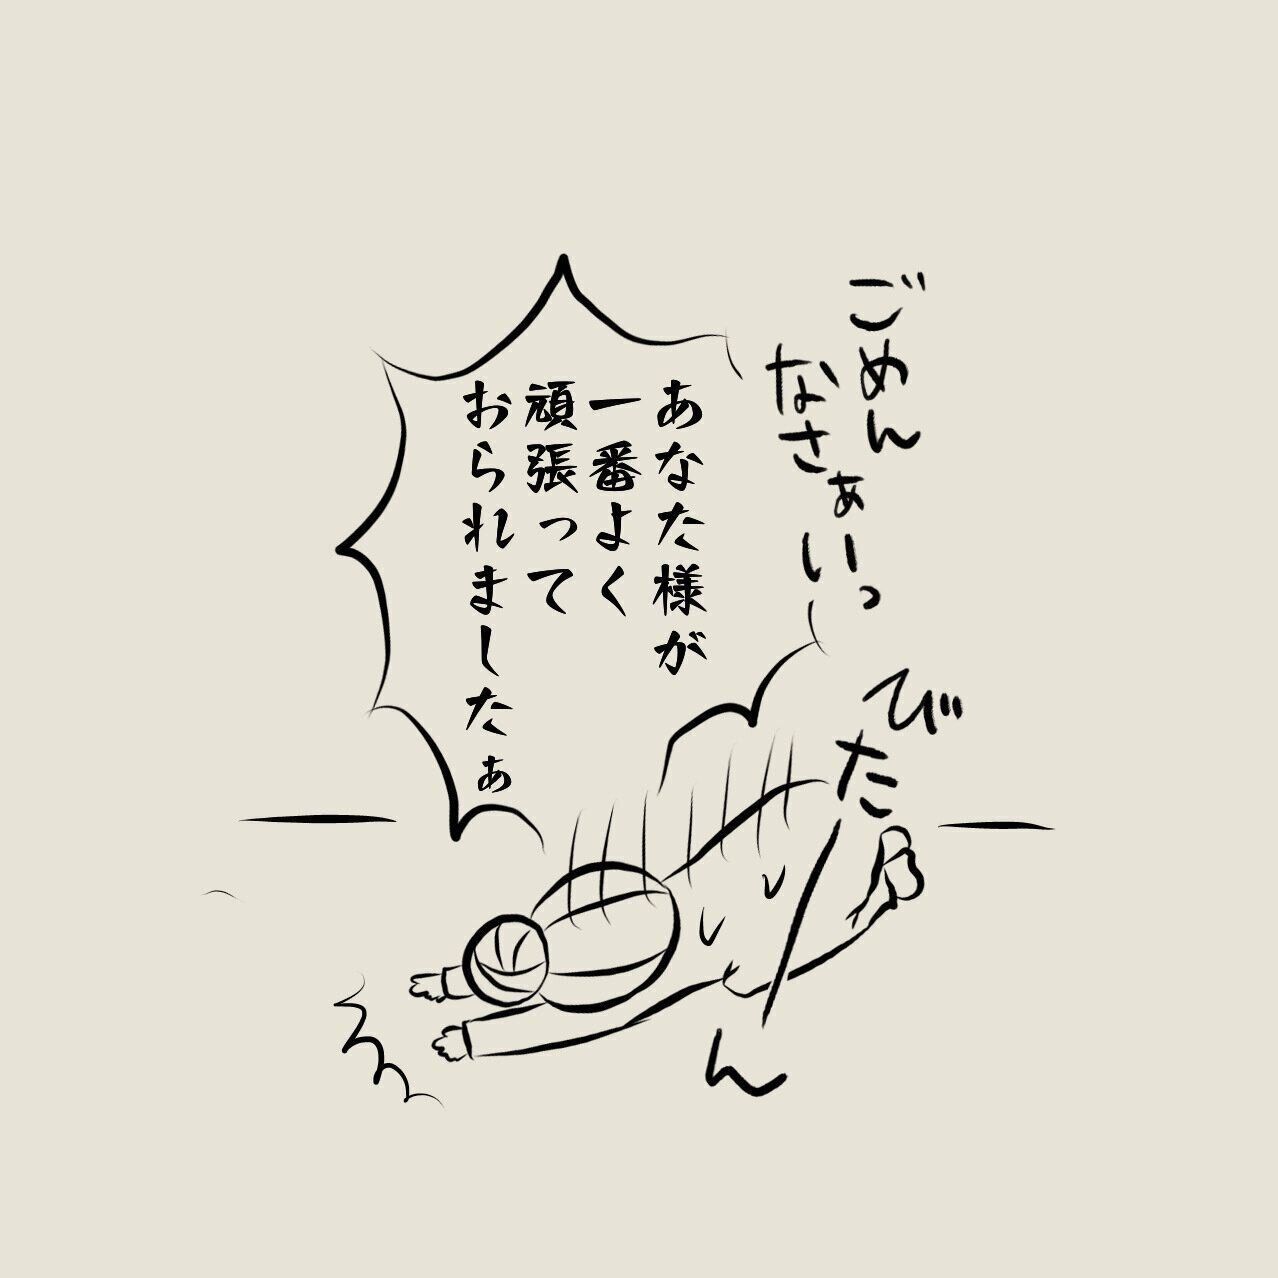 ごめん
なさぁいっ
あなた様が
一番よく
頑張って
おられましたぁ
びたーん